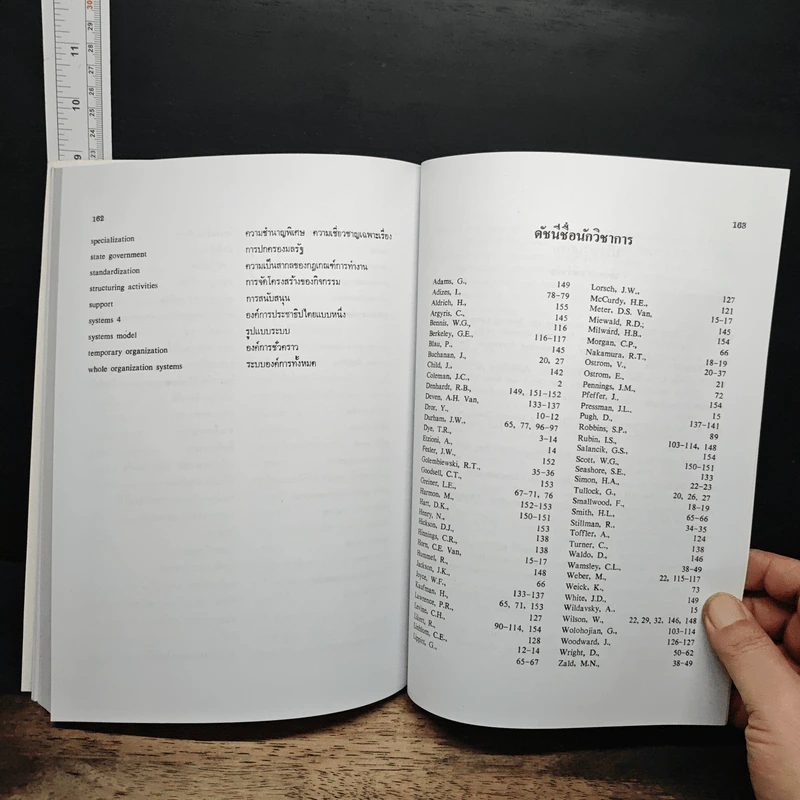 162
specialization ความชำนาญพิเศษ ความเชี่ยวชาญเฉพาะเรื่อง
state government การปกครองมลรัฐ
standardization ความเป็นสากลของกฎเกณฑ์การทำงาน
structuring activities การจัดโครงสร้างของกิจกรรม
support การสนับสนุน
systems 4 องค์การประชาธิปไตยแบบหนึ่ง
systems model รูปแบบระบบ
temporary organization องค์การชั่วคราว
whole organization systems ระบบองค์การทั้งหมด
163
ดัชนีชื่อนักวิชาการ
Adams, G., 149
Adizes, I., 78-79
Aldrich, H., 155
Argyris, C., 145
Bennis, W.G., 116
Berkeley, G.E., 116-117
Blau, P., 145
Buchanan, J., 20, 27
Child, J., 142
Coleman, J.C., 2
Denhardt, R.B., 149, 151-152
Deven, A.H. Van, 133-137
Dror, Y., 10-12
Durham, J.W., 65, 77, 96-97
Dye, T.R., 3-14
Etzioni, A., 14
Fesler, J.W., 152
Golembiewski, R.T., 35-36
Goodsell, C.T., 153
Greiner, L.E., 67-71, 76
Harmon, M., 152-153
Hart, D.K., 150-151
Henry, N., 153
Hickson, D.J., 138
Hinnings, C.R., 138
Horn, C.E. Van, 15-17
Hummel, R., 148
Jackson, J.K., 66
Joyce, W.F., 133-137
Kaufman, H., 65, 71, 153
Lawrence, P.R., 127
Levine, C.H., 90-114, 154
Likert, R., 128
Lindblom, C.E., 12-14
Lippitt, G., 65-67
Lorsch, J.W., 127
McCurdy, H.E., 121
Meter, D.S. Van, 15-17
Miewald, R.D.; 145
Milward, H.B., 154
Morgan, C.P., 66
Nakamura, R.T., 18-19
Ostrom, V., 20-37
Ostrom, E., 21
Pennings, J.M., 72
Pfeffer, J., 154
Pressman, J.L., 15
Pugh, D., 137-141
Robbins, S.P., 89
Rubin, I.S., 103-114, 148
Salancik, G.S., 154
Scott, W.G., 150-151
Seashore, S.E., 133
Simon, H.A., 22-23
Tullock, G., 20, 26, 27
Smallwood, F., 18-19
Smith, H.L., 65-66
Stillman, R., 34-35
Toffler, A., 124
Turner, C., 138
Waldo, D., 146
Wamsley, C.L., 38-49
Weber, M., 22, 115-117
Weick, K., 73
White, J.D., 149
Wildavsky, A., 15
Wilson, W., 22, 29, 32, 146, 148
Wolohojian, G., 103-114
Woodward, J., 126-127
Wright, D., 50-62
Zald, M.N., 38-49